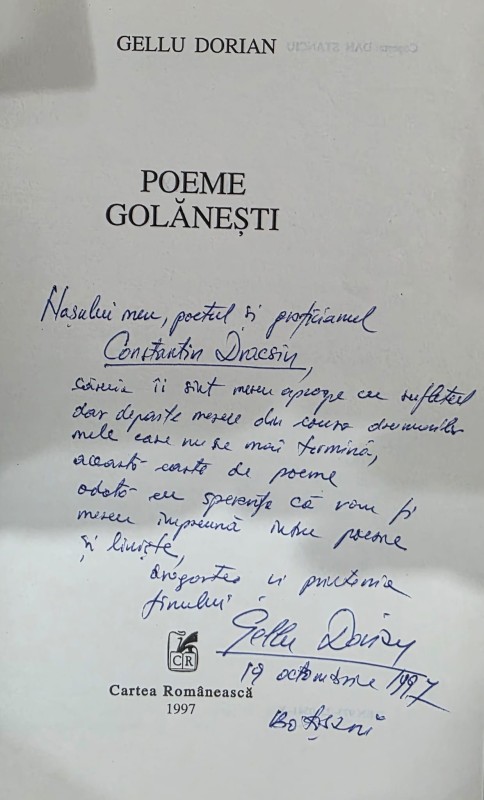 GELLU DORIAN
Coperta: DAN STANCIU
POEME
GOLĂNEȘTI
Nașului meu, poetul și
Constantin Dracsin,
căruia îi sînt mereu aproape cu sufletul
dar departe mereu din cauza drumurilor
mele care nu se mai termină,
această carte de poeme
odată cu speranța că vom fi
mereu împreună întru poeme
și liniște,
dragostea și prietenia
finului
Gellu Dorian
19 octombrie 1997
Botoșani
CR
Cartea Românească
1997